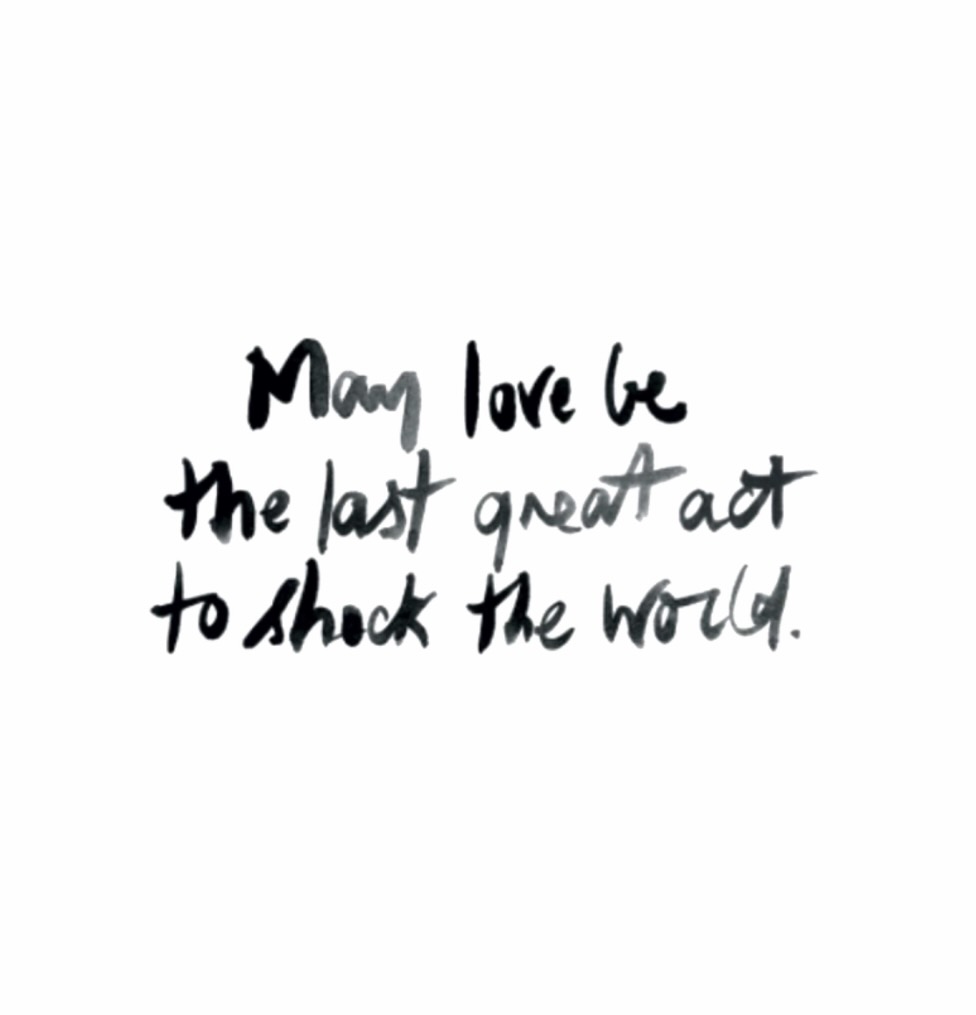 May love be
the last great act
to shock the world.